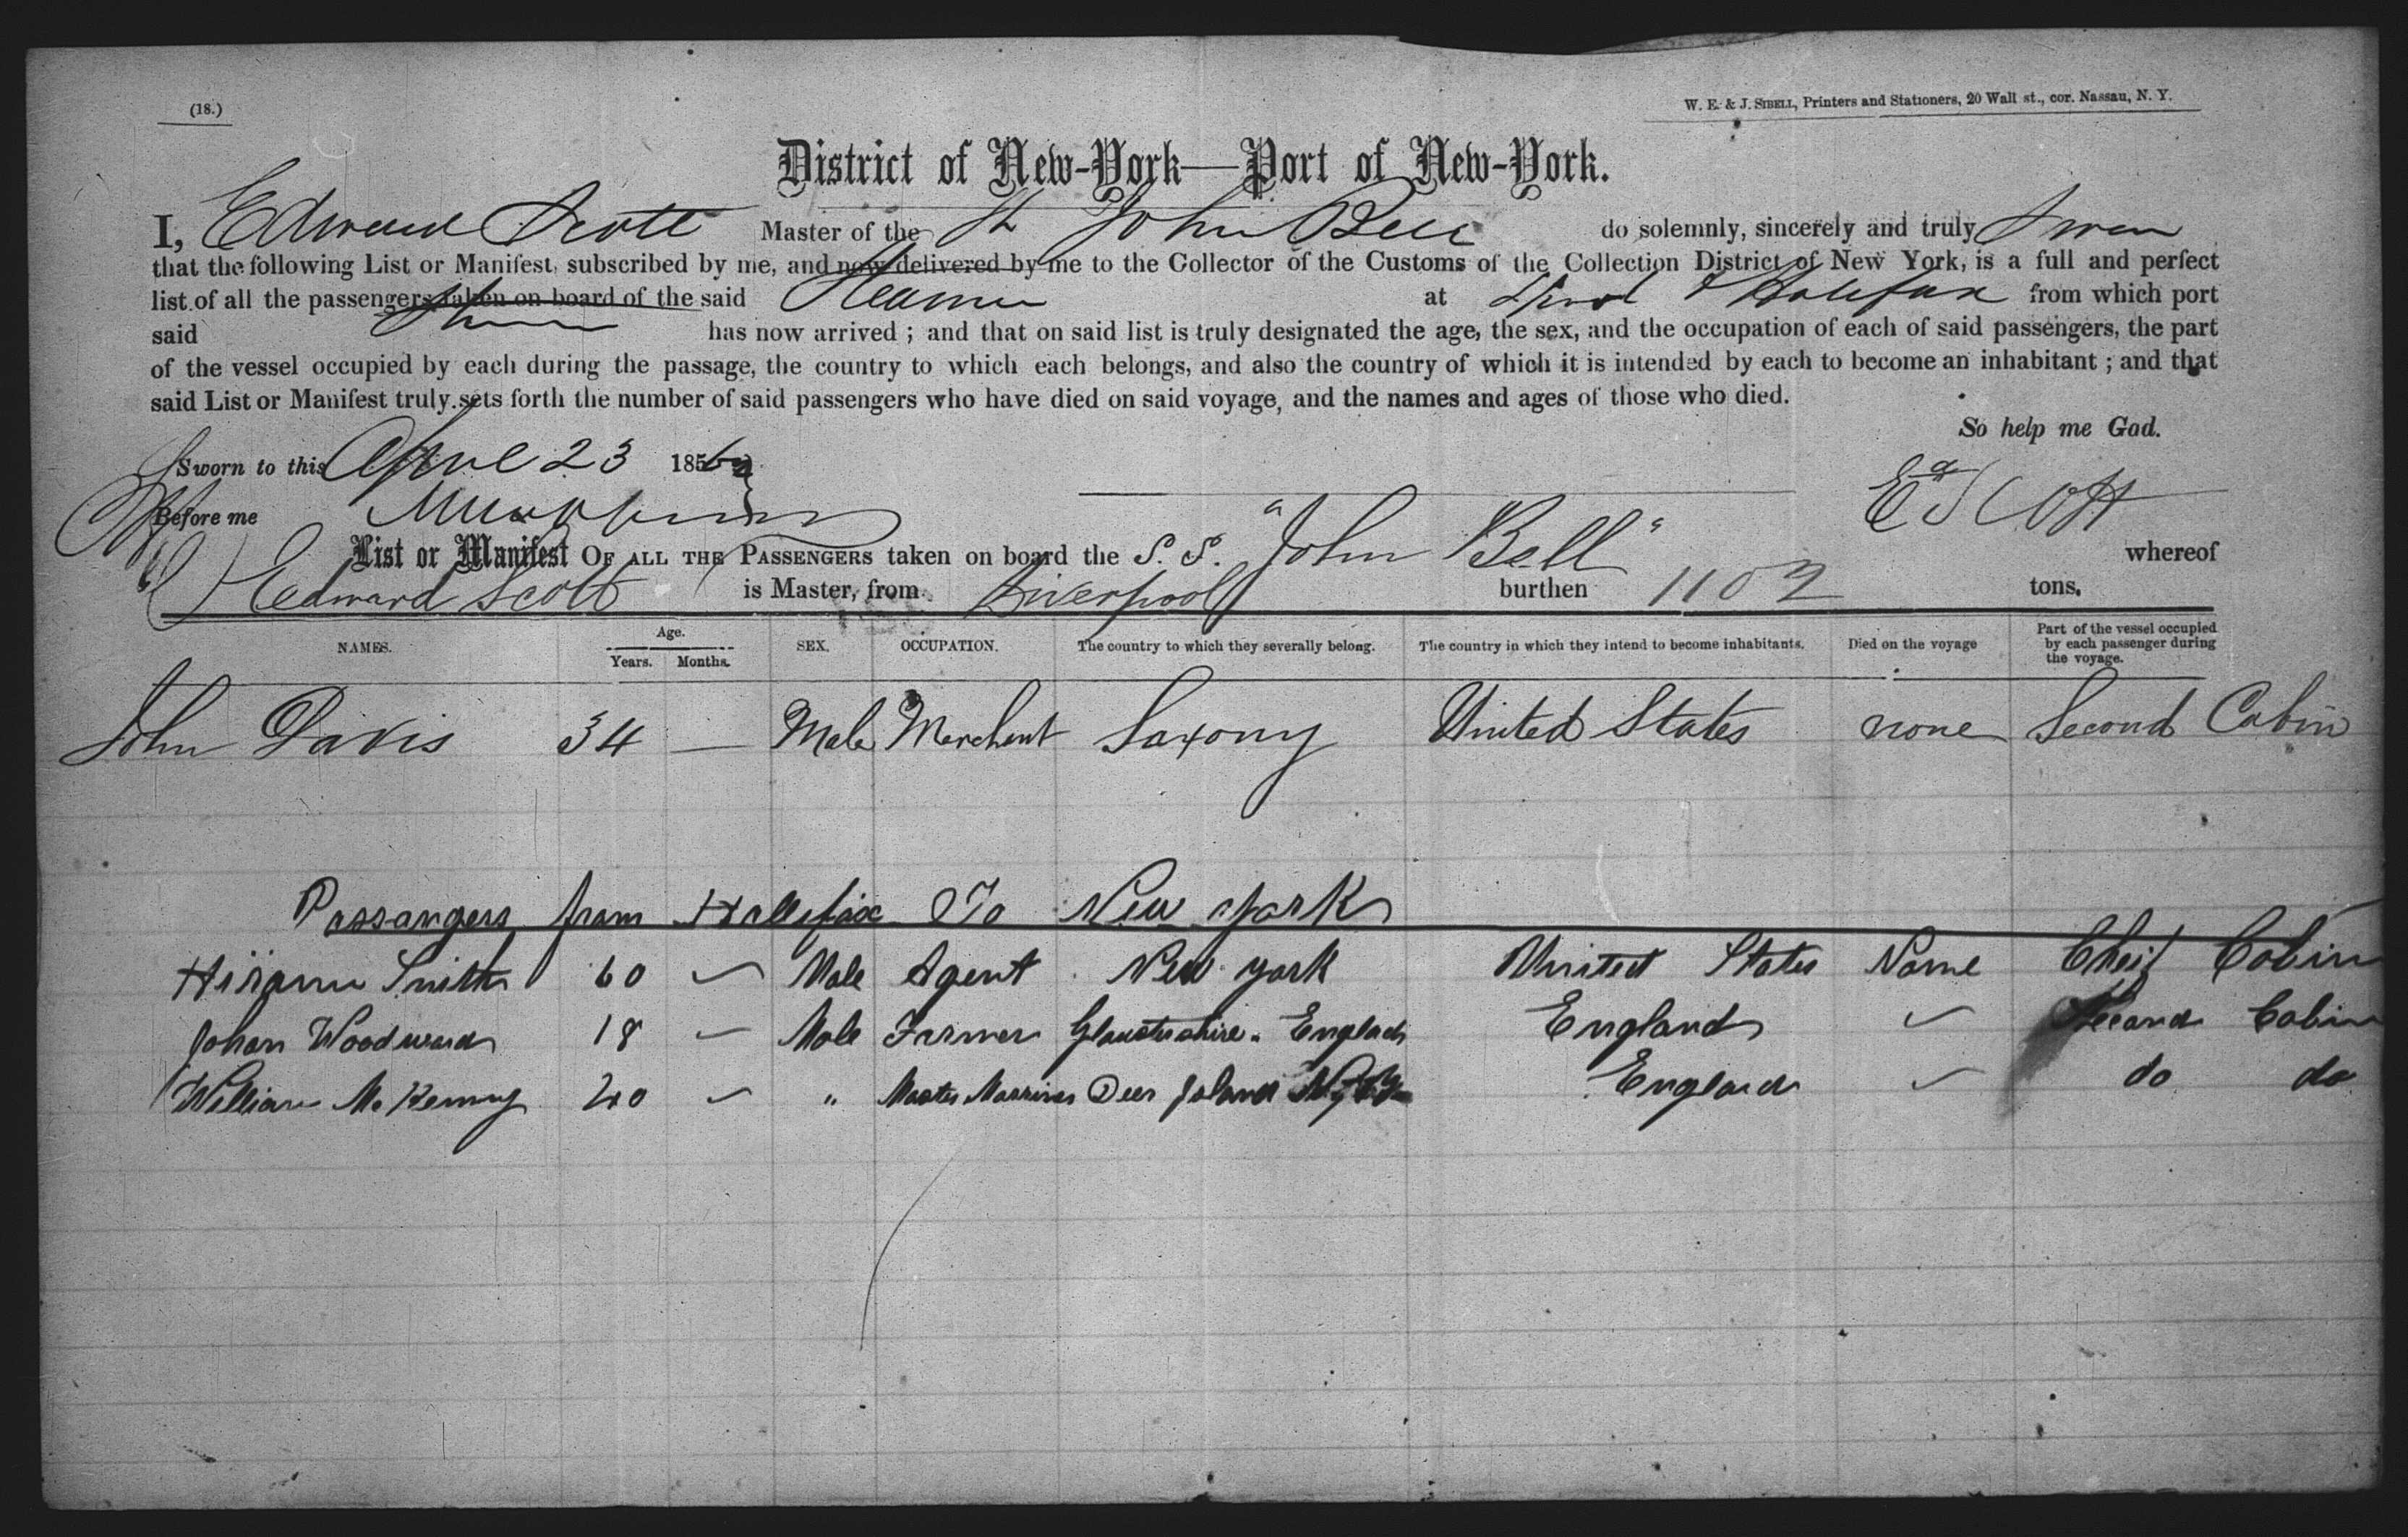 (18.)
W. E. & J. SIBELL, Printers and Stationers, 20 Wall st., cor. Nassau, N. Y.
District of New-York—Port of New-York.
I, Edward Scott Master of the St John Bell do solemnly, sincerely and truly Swear
that the following List or Manifest, subscribed by me, and now delivered by me to the Collector of the Customs of the Collection District of New York, is a full and perfect
list of all the passengers taken on board of the said Steamer at Lpool & Halifax from which port
said has now arrived ; and that on said list is truly designated the age, the sex, and the occupation of each of said passengers, the part
of the vessel occupied by each during the passage, the country to which each belongs, and also the country of which it is intended by each to become an inhabitant ; and that
said List or Manifest truly sets forth the number of said passengers who have died on said voyage, and the names and ages of those who died.
So help me God.
Sworn to this April 23 185
Before me
Ed Scott
List or Manifest OF ALL THE PASSENGERS taken on board the S. S. "John Bell" whereof
Edward Scott is Master, from Liverpool burthen 1102 tons.
NAMES. Age. Years. Months. SEX. OCCUPATION. The country to which they severally belong. The country in which they intend to become inhabitants. Died on the voyage Part of the vessel occupied by each passenger during the voyage.
John Davis 34 — Male Merchant Saxony United States none Second Cabin
Passangers from Hallifax To New York
Hiram Smith 60 Male Agent New York United States None Cheif Cabin
Johan Woodward 18 Male Farmer Gloustershire England England Second Cabin
William McKenny 20 " Master Marriner Deer Island England do do